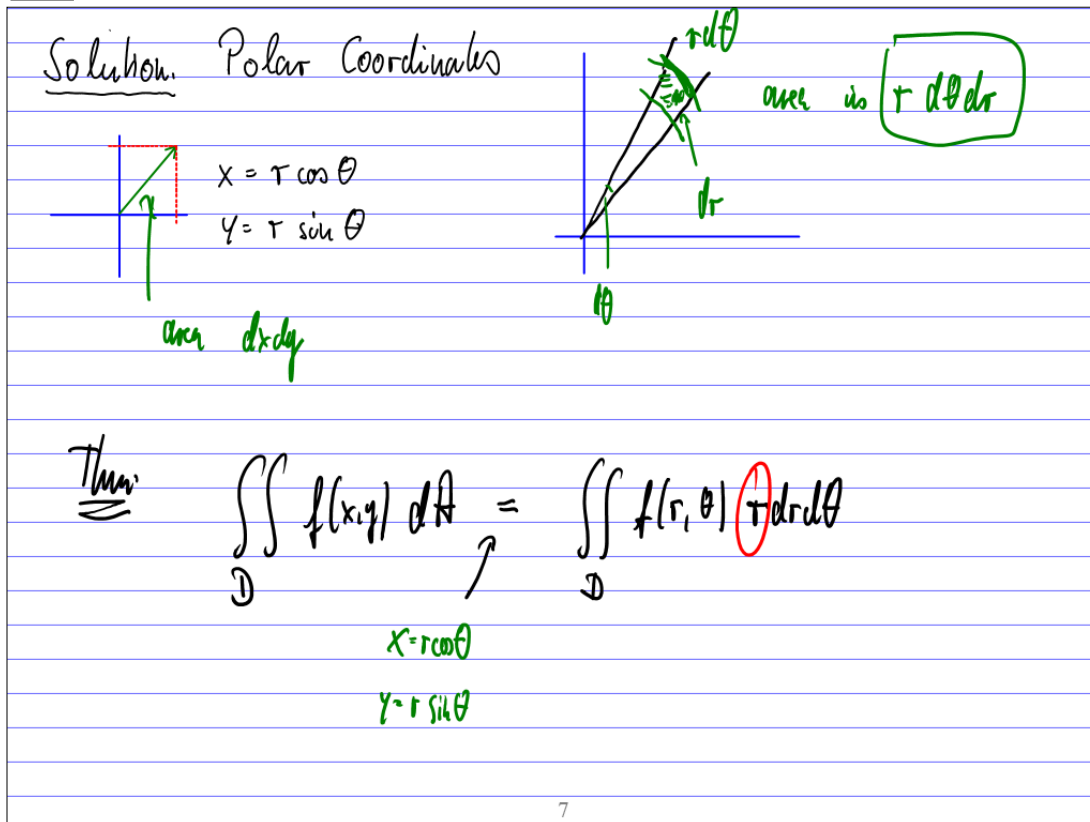 Solution. Polar Coordinates
x = r cos θ
y = r sin θ
area dxdy
rdθ
area is r dθ dr
dr
dθ
Thm:
∬ f(x,y) dA = ∬ f(r, θ) r drdθ
D D
x = r cos θ
y = r sin θ
7